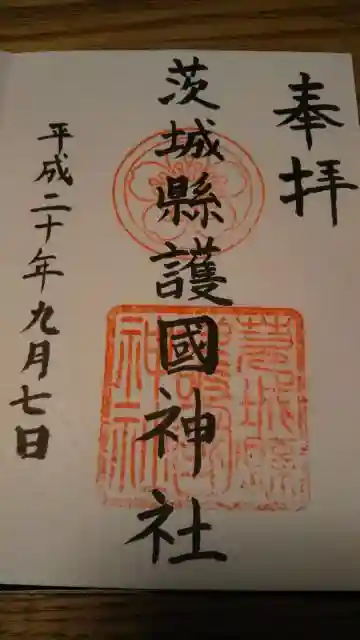 奉拝
茨城縣護國神社
茨城縣
護國
神社
平成二十年九月七日